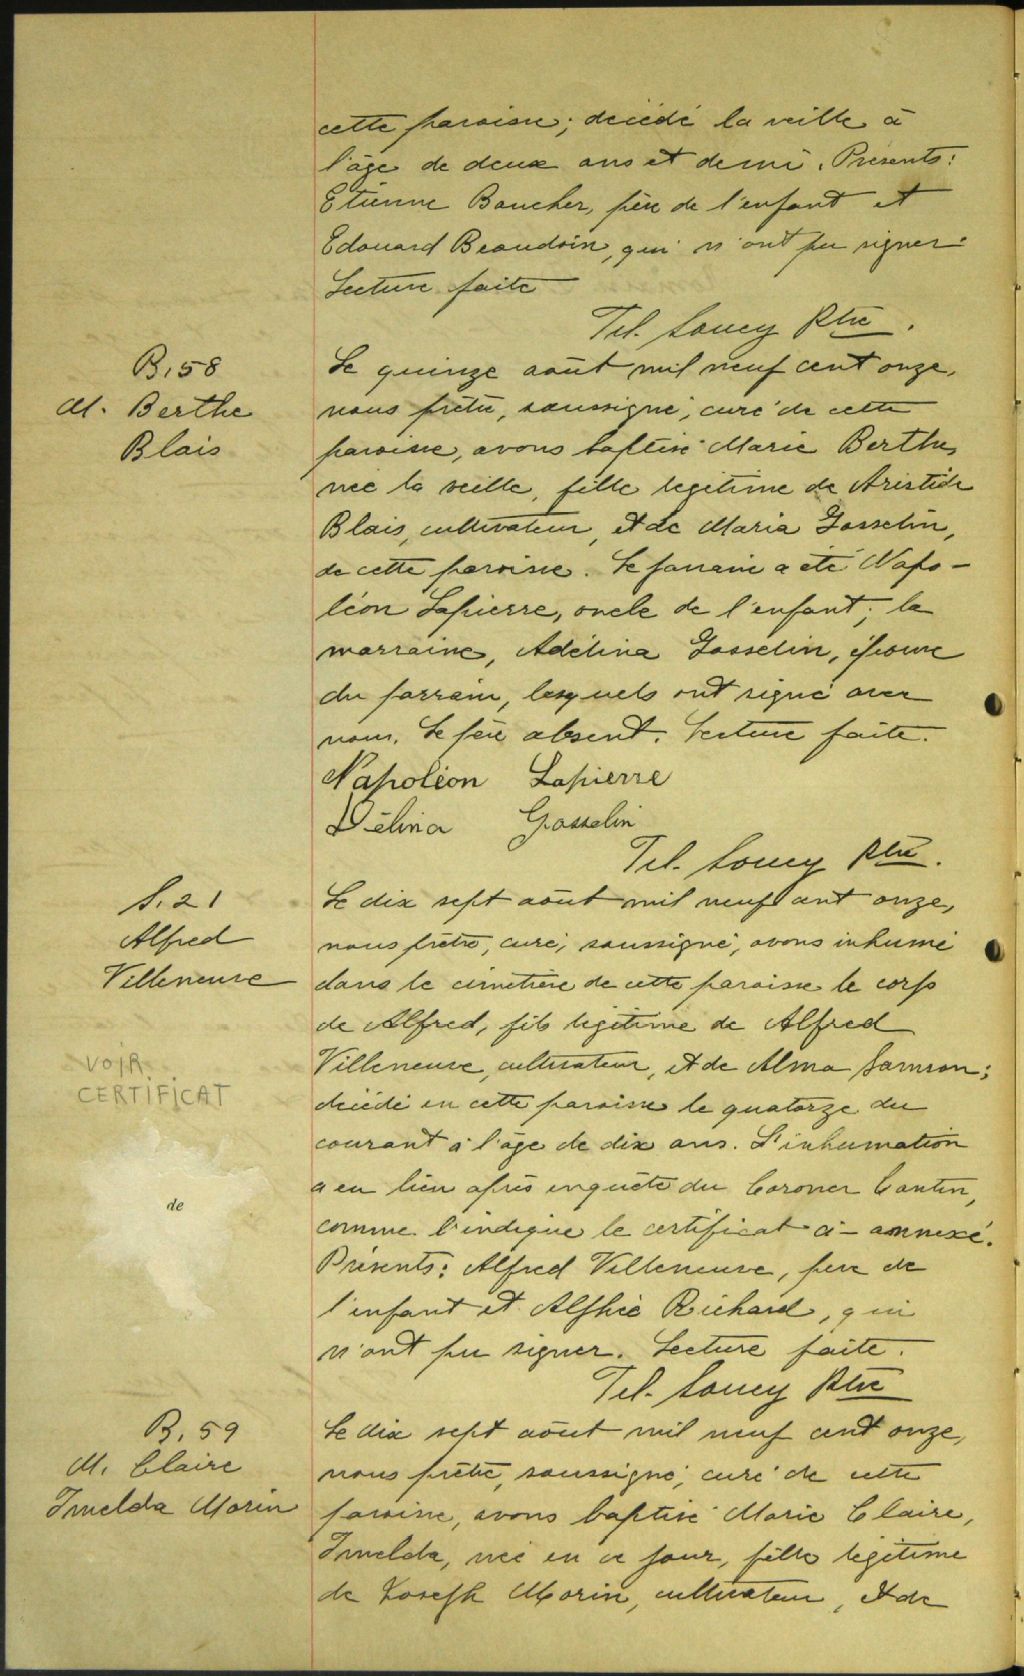 cette paroisse; décédé la veille à
l'âge de deux ans et demi. Présents:
Etienne Boucher, père de l'enfant et
Edouard Beaudoin, qui n'ont pu signer.
Lecture faite
Tel. Soucy Ptre.
B. 58
M. Berthe
Blais
Le quinze août mil neuf cent onze,
nous prêtre, soussigné, curé de cette
paroisse, avons baptisé Marie Berthe,
née la veille, fille légitime de Aristide
Blais, cultivateur, et de Maria Gosselin,
de cette paroisse. Le parrain a été Napo-
léon Lapierre, oncle de l'enfant; la
marraine, Adélina Gosselin, épouse
du parrain, lesquels ont signé avec
nous. Le père absent. Lecture faite.
Napoléon Lapierre
Délina Gosselin
Tel. Soucy Ptre.
S. 21
Alfred
Villeneuve
VOIR
CERTIFICAT
de
Le dix sept août mil neuf cent onze,
nous prêtre, curé, soussigné, avons inhumé
dans le cimetière de cette paroisse le corps
de Alfred, fils légitime de Alfred
Villeneuve, cultivateur, et de Alma Samson;
décédé en cette paroisse le quatorze du
courant à l'âge de dix ans. L'inhumation
a eu lieu après enquête du Coroner Cantin,
comme l'indique le certificat ci-annexé.
Présents: Alfred Villeneuve, père de
l'enfant et Alphie Richard, qui
n'ont pu signer. Lecture faite.
Tel. Soucy Ptre
B. 59
M. Claire
Imelda Morin
Le dix sept août mil neuf cent onze,
nous prêtre, soussigné, curé de cette
paroisse, avons baptisé Marie Claire,
Imelda, née en ce jour, fille légitime
de Joseph Morin, cultivateur, et de